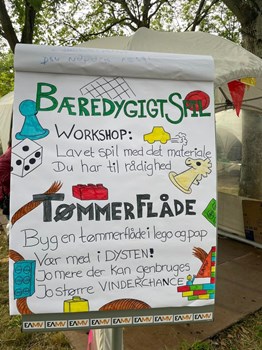 BÆREDYGIGT SPIL
WORKSHOP:
Lav et spil med det materiale
Du har til rådighed
TØMMERFLÅDE
Byg en tømmerflåde i lego og pap
Vær med i DYSTEN!
Jo mere der kan genbruges
Jo større VINDERCHANCE
EAMV EAMV EAMV EAMV EAMV EAMV